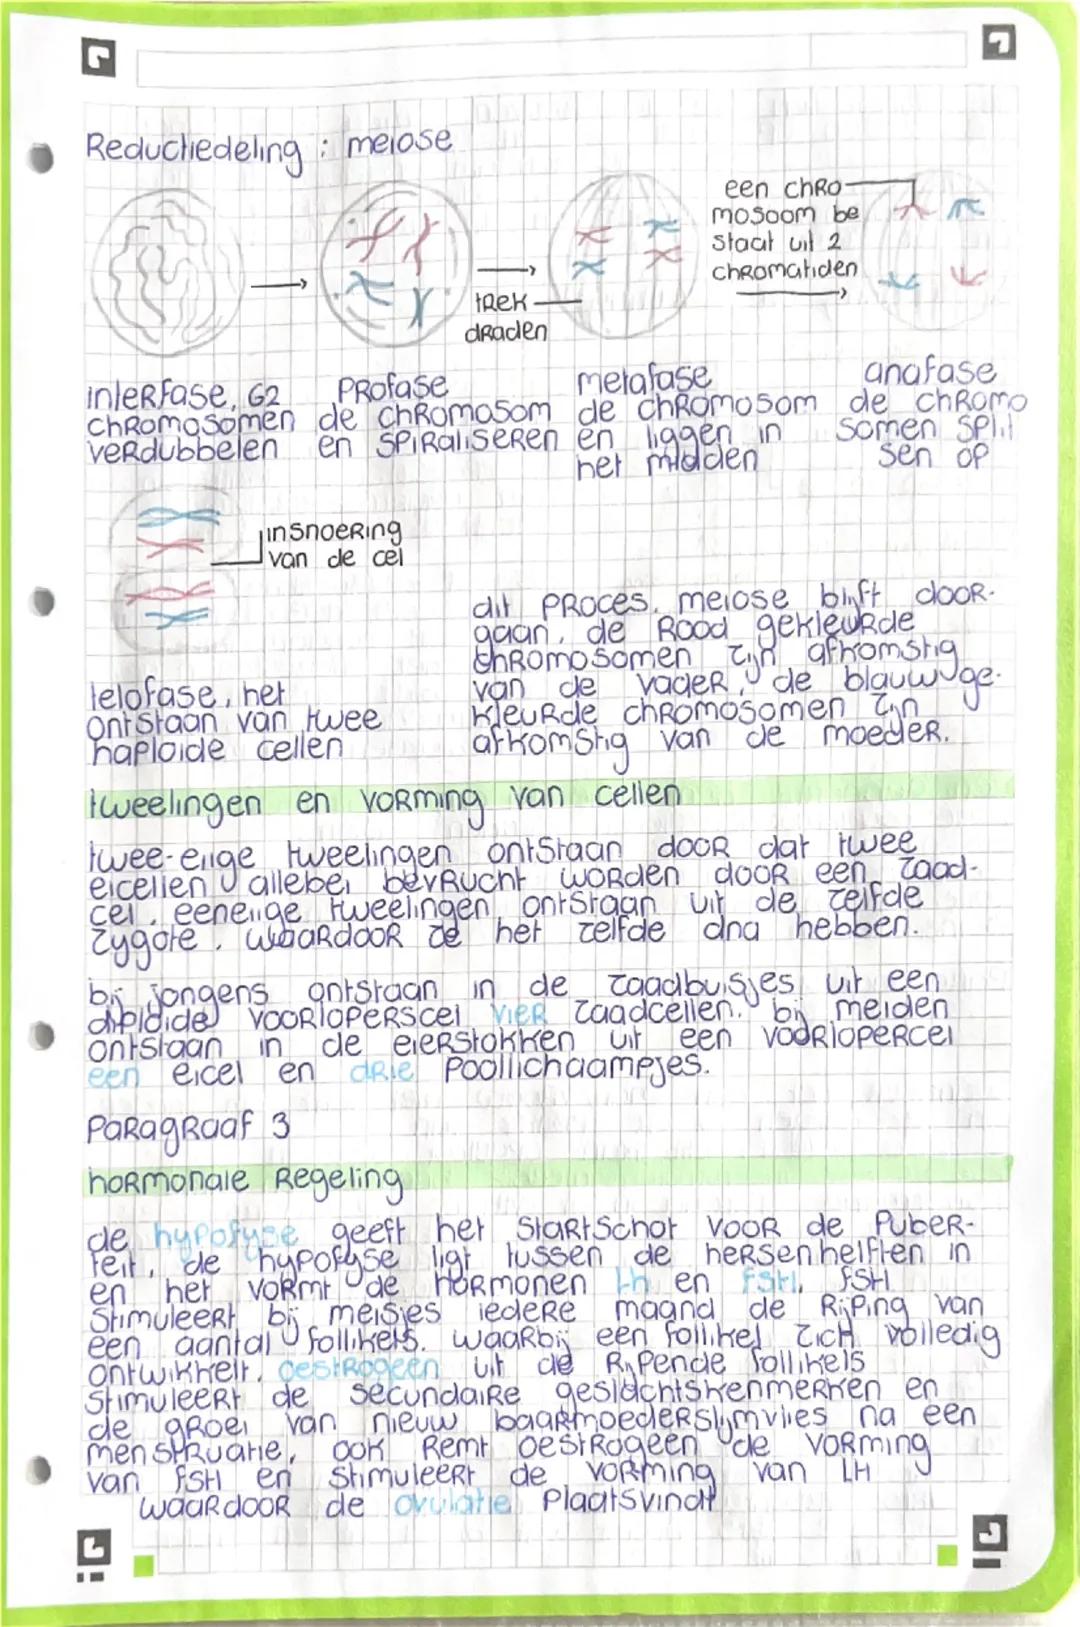 Reductiedeling : meiose
een chRo-
mosoom be
staat uit 2
chRomatiden
tRek
dRaden
inteRfase, G2
chRomosomen
veRdubbelen
PRofase
de chRomosom
en sPiRaliseRen
metafase
de chRomosom
en liggen in
het midden
anafase
de chRomo
somen split
sen op
insnoeRing
van de cel
telofase, het
ontstaan van twee
haploide cellen
dit PRoces, meiose blijft dooR-
gaan, de Rood gekleuRde
chRomosomen zijn afkomstig
van de vadeR, de blauw ge-
kleuRde chRomosomen zijn
afkomstig van de moedeR.
tweelingen en voRming van cellen
twee-eiige tweelingen ontstaan dooR dat twee
eicellen allebei bevRucht woRden dooR een zaad-
cel. eeneiige tweelingen ontstaan uit de zelfde
zygote, waaRdooR ze het zelfde dna hebben.
bij jongens ontstaan in de zaadbuisjes uit een
diploide vooRloperscel vieR zaadcellen. bij meiden
ontstaan in de eieRstokken uit een vooRlopercel
een eicel en dRie Poollichaampjes.
PaRagRaaf 3
hoRmonale Regeling
de hypofyse geeft het staRtschot vooR de PubeR-
teit, de hypofyse ligt tussen de heRsenhelften in
en het voRmt de hoRmonen Lh en FSH, FSH
stimuleeRt bij meisjes iedeRe maand de Rijping van
een aantal follikels. waaRbij een follikel zich volledig
ontwikkelt. oestRogeen uit de Rijpende follikels
stimuleeRt de secundaiRe geslachtskenmeRken en
de gRoei van nieuw baaRmoedeRslijmvlies na een
menstRuatie, ook Remt oestRogeen de voRming
van FSH en stimuleeRt de voRming van LH
waaRdooR de ovulatie Plaatsvindt